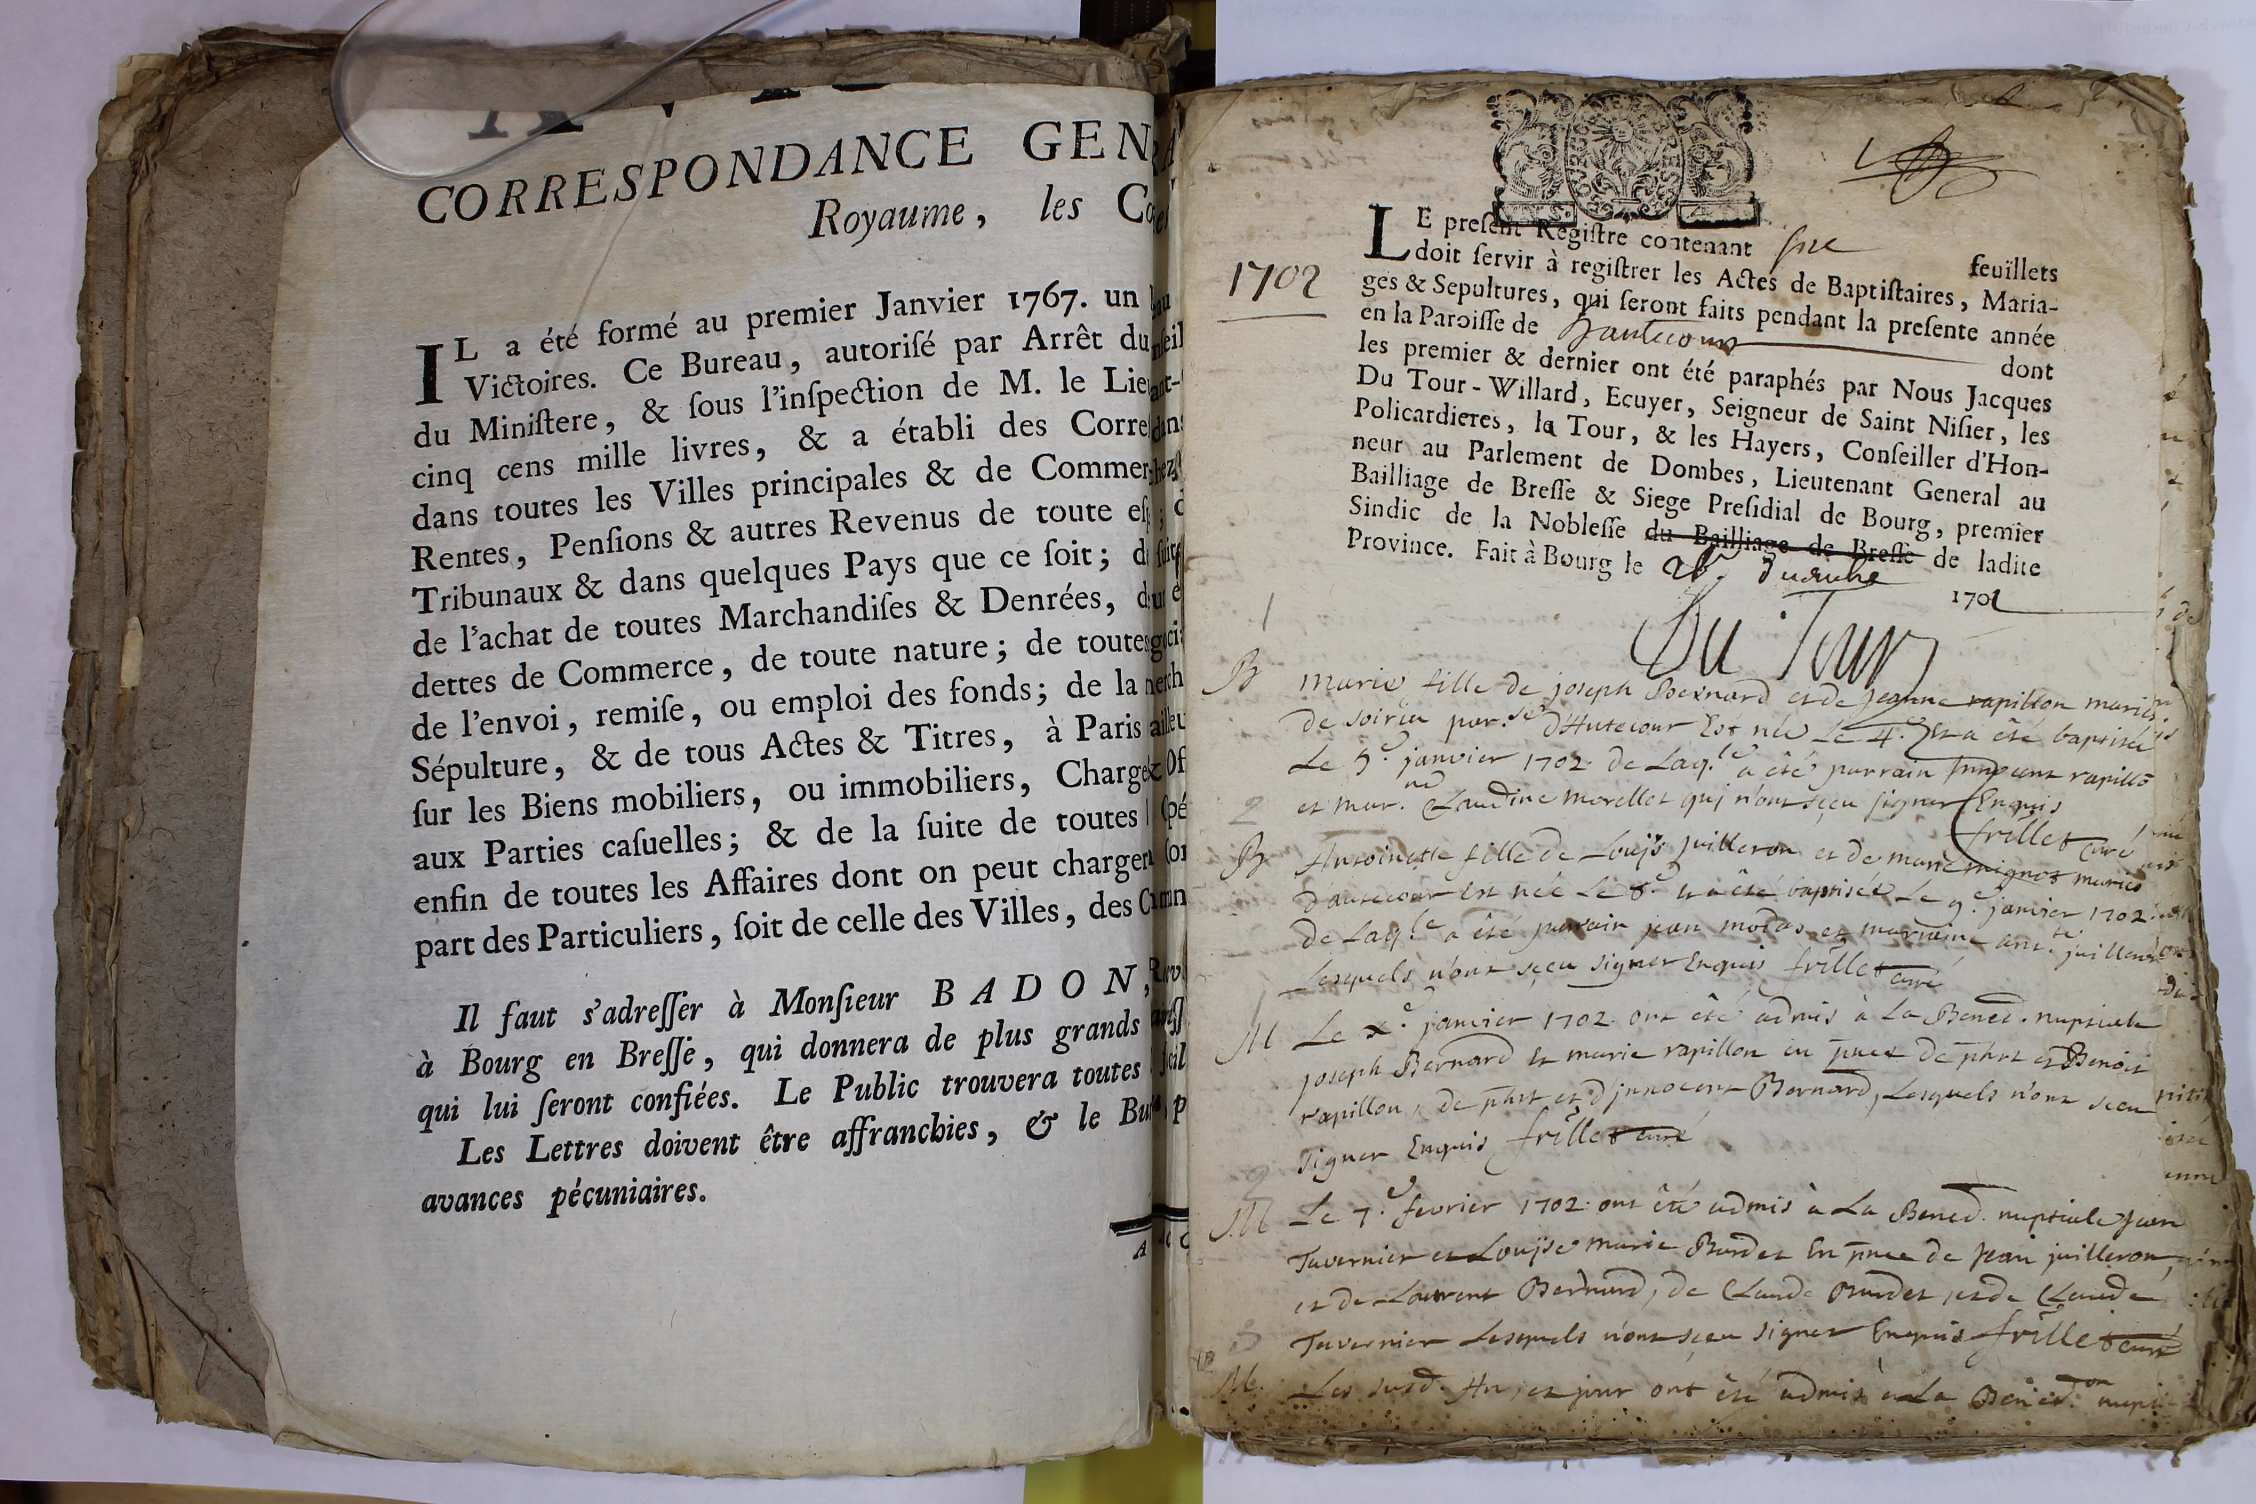 CORRESPONDANCE GEN
Royaume, les Co
IL a été formé au premier Janvier 1767. un
Victoires. Ce Bureau, autoriſé par Arrêt du
du Miniſtere, & ſous l'inſpection de M. le Lie
cinq cens mille livres, & a établi des Corre
dans toutes les Villes principales & de Commer
Rentes, Penſions & autres Revenus de toute eſ
Tribunaux & dans quelques Pays que ce ſoit; d
de l'achat de toutes Marchandiſes & Denrées, d
dettes de Commerce, de toute nature; de toutes
de l'envoi, remiſe, ou emploi des fonds; de la
Sépulture, & de tous Actes & Titres, à Paris
ſur les Biens mobiliers, ou immobiliers, Charge
aux Parties caſuelles; & de la ſuite de toutes
enfin de toutes les Affaires dont on peut charger
part des Particuliers, ſoit de celle des Villes, des C
Il faut s'adreſſer à Monſieur BADON,
à Bourg en Breſſe, qui donnera de plus grands
qui lui ſeront confiées. Le Public trouvera toutes
Les Lettres doivent être affranchies, & le Bu
avances pécuniaires.
1702
LE preſent Regiſtre contenant feuillets
doit ſervir à regiſtrer les Actes de Baptiſtaires, Maria-
ges & Sepultures, qui ſeront faits pendant la preſente année
en la Paroiſſe de hautecour dont
les premier & dernier ont été paraphés par Nous Jacques
Du Tour-Willard, Ecuyer, Seigneur de Saint Niſier, les
Policardieres, la Tour, & les Hayers, Conſeiller d'Hon-
neur au Parlement de Dombes, Lieutenant General au
Bailliage de Breſſe & Siege Preſidial de Bourg, premier
Sindic de la Nobleſſe du Bailliage de Breſſe de ladite
Province. Fait à Bourg le 1701
Du Tour
1
B marie fille de joseph Bernard et de jeanne rapillon mariés
de soiria par.se d'hutecour Est née Le 4.e Et a êté baptisée
Le 5.e janvier 1702 de Laq.le a êté parrain Innocent rapillõ
et mar.ne Claudine morellet quj n'ont sçeu signer Enquis
frillet curé
2
B Antoinette fille de Louÿs juilleron et de marie mignot mariés
d'autecour Est née Le 8.e et a êté baptisée Le 9.e janvier 1702
de Laq.le a êté parrain jean modas et marraine ant.te juilleron
Lesquels n'ont sçeu signer Enquis frillet curé
1
M Le x.e janvier 1702 ont êté admis à La Bened. nuptiale
joseph Bernard et marie rapillon en pnce de phrt et Benoit
rapillon, de phrt et d'jnnocent Bernard, Lesquels n'ont sceu
signer Enquis frillet curé
2
M Le 7.e fevrier 1702 ont êté admis à La Bened. nuptiale jean
Tavernier et Louÿse marie Burdet En pnce de jean juilleron,
et de Laurent Bernard, de Claude Burdet, et de Claude
Tavernier Lesquels n'ont sçeu signer Enquis frillet curé
3
M. Les susd. An, et jour ont êté admis à La Bened.on nupt